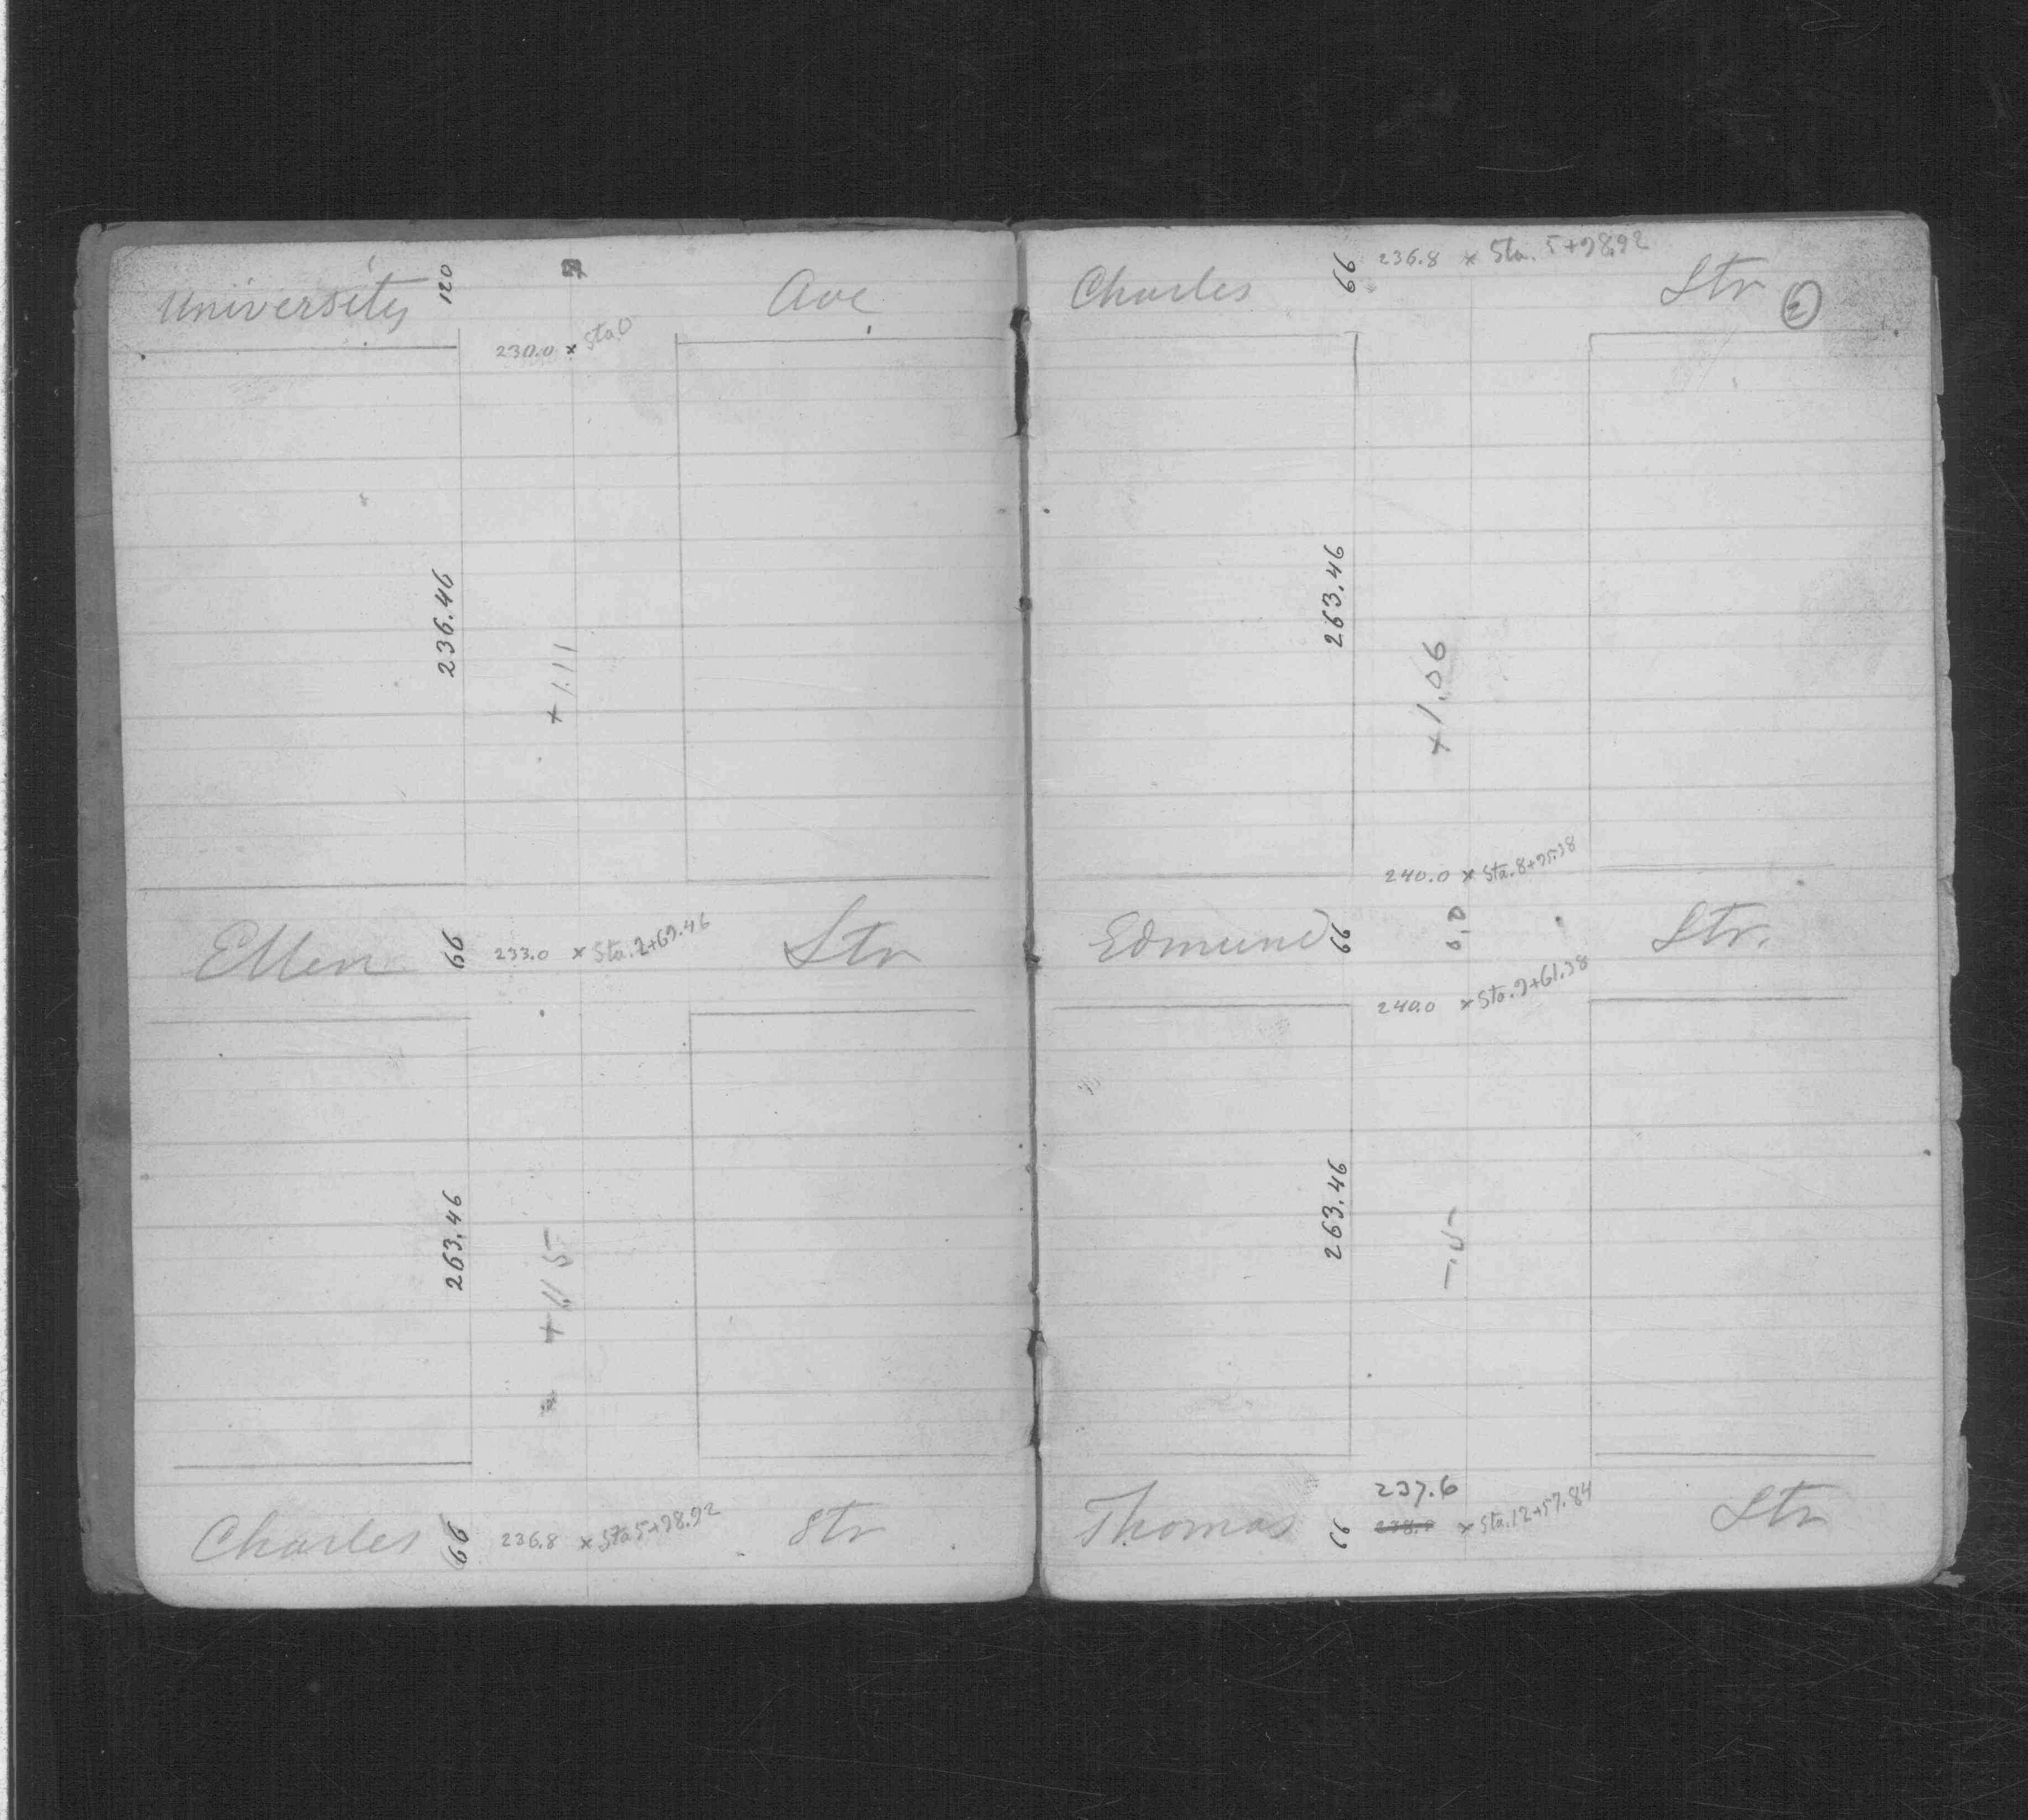 University 120 Ave
230.0 x Sta.0
236.46
+1.11
Ellen 66 233.0 x Sta.2+69.46 Str
263.46
+1.15
Charles 66 236.8 x Sta5+98.92 Str
Charles 66 236.8 x Sta. 5+98.92 Str 2
263.46
+1.06
240.0 x Sta.8+95.38
Edmund 66 0.0 Str.
240.0 x Sta.9+61.38
263.46
-.5-
237.6
Thomas 66 238.0 x Sta.12+57.84 Str